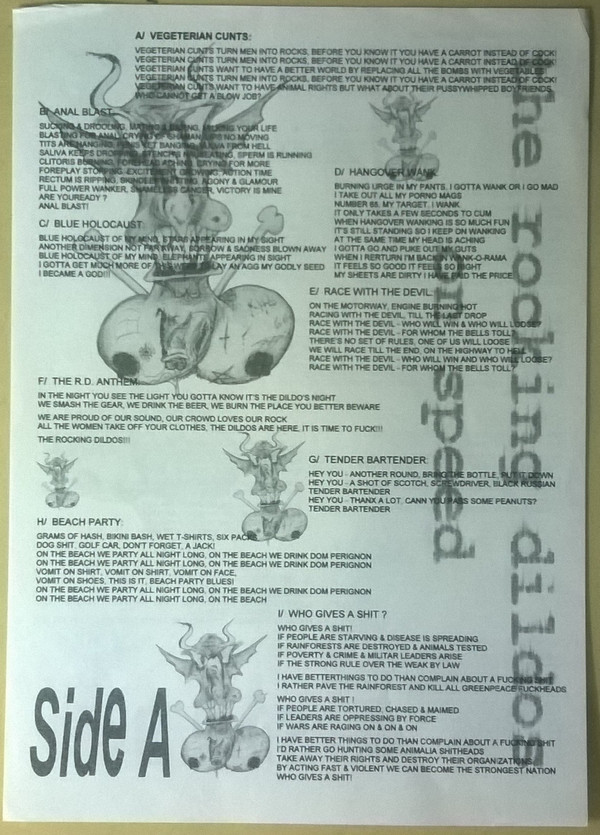 A/ VEGETERIAN CUNTS:
VEGETERIAN CUNTS TURN MEN INTO ROCKS, BEFORE YOU KNOW IT YOU HAVE A CARROT INSTEAD OF COCK!
VEGETERIAN CUNTS TURN MEN INTO ROCKS, BEFORE YOU KNOW IT YOU HAVE A CARROT INSTEAD OF COCK!
VEGETERIAN CUNTS WANT TO HAVE A BETTER WORLD BY REPLACING ALL THE BOMBS WITH VEGETABLES
VEGETERIAN CUNTS TURN MEN INTO ROCKS, BEFORE YOU KNOW IT YOU HAVE A CARROT INSTEAD OF COCK!
VEGETERIAN CUNTS WANT TO HAVE ANIMAL RIGHTS BUT WHAT ABOUT THEIR PUSSYWHIPPED BOYFRIENDS
WHO CANNOT GET A BLOW JOB?
B/ ANAL BLAST
SUCKING & DROOLING, YOUR LIFE
BLASTING FOR ANAL NO MOVING
TITS ARE HANGING, GET BANGING, FROM HELL
SALIVA KEEPS SPERM IS RUNNING
CLITORIS BURNING, FOREHEAD ACHING, CRYING FOR MORE
FOREPLAY STOPPING, EXCITEMENT GROWING, ACTION TIME
RECTUM IS RIPPING, AGONY & GLAMOUR
FULL POWER WANKER, SHAMELESS CANCER, VICTORY IS MINE
ARE YOU READY ?
ANAL BLAST!
C/ BLUE HOLOCAUST:
BLUE HOLOCAUST OF MY MIND, STARS APPEARING IN MY SIGHT
ANOTHER DIMENSION NOT FAR AWAY, SORROW & SADNESS BLOWN AWAY
BLUE HOLOCAUST OF MY MIND, ELEPHANTS APPEARING IN SIGHT
I GOTTA GET MUCH MORE OF THIS LAY AN AGG MY GODLY SEED
I BECAME A GOD!!!
D/ HANGOVER WANK
BURNING URGE IN MY PANTS, I GOTTA WANK OR I GO MAD
I TAKE OUT ALL MY PORNO MAGS
NUMBER 88, MY TARGET, I WANK
IT ONLY TAKES A FEW SECONDS TO CUM
WHEN HANGOVER WANKING IS SO MUCH FUN
IT'S STILL STANDING SO I KEEP ON WANKING
AT THE SAME TIME MY HEAD IS ACHING
I GOTTA GO AND PUKE OUT MY GUTS
WHEN I RERTURN I'M BACK WANK-O-RAMA
IT FEELS SO GOOD IT FEELS SO RIGHT
MY SHEETS ARE DIRTY I HAVE PAID THE PRICE!
E/ RACE WITH THE DEVIL:
ON THE MOTORWAY, ENGINE BURNING HOT
RACING WITH THE DEVIL, TILL THE LAST DROP
RACE WITH THE DEVIL - WHO WILL WIN & WHO WILL LOOSE?
RACE WITH THE DEVIL - FOR WHOM THE BELLS TOLL?
THERE'S NO SET OF RULES, ONE OF US WILL LOOSE
WE WILL RACE TILL THE END, ON THE HIGHWAY TO HELL
RACE WITH THE DEVIL - WHO WILL WIN AND WHO WILL LOOSE?
RACE WITH THE DEVIL - FOR WHOM THE BELLS TOLL?
F/ THE R.D. ANTHEM
IN THE NIGHT YOU SEE THE LIGHT YOU GOTTA KNOW IT'S THE DILDO'S NIGHT
WE SMASH THE GEAR, WE DRINK THE BEER, WE BURN THE PLACE YOU BETTER BEWARE
WE ARE PROUD OF OUR SOUND, OUR CROWD LOVES OUR ROCK
ALL THE WOMEN TAKE OFF YOUR CLOTHES, THE DILDOS ARE HERE, IT IS TIME TO FUCK!!!
THE ROCKING DILDOS!!!
G/ TENDER BARTENDER:
HEY YOU - ANOTHER ROUND, BRING THE BOTTLE, PUT IT DOWN
HEY YOU - A SHOT OF SCOTCH, SCREWDRIVER, BLACK RUSSIAN
TENDER BARTENDER
HEY YOU - THANX A LOT, CANN YOU PASS SOME PEANUTS?
TENDER BARTENDER
H/ BEACH PARTY:
GRAMS OF HASH, BIKINI BASH, WET T-SHIRTS, SIX PACKS
DOG SHIT, GOLF CAR, DON'T FORGET, A JACK!
ON THE BEACH WE PARTY ALL NIGHT LONG, ON THE BEACH WE DRINK DOM PERIGNON
ON THE BEACH WE PARTY ALL NIGHT LONG, ON THE BEACH WE DRINK DOM PERIGNON
VOMIT ON SHIRT, VOMIT ON SHIRT, VOMIT ON FACE,
VOMIT ON SHOES, THIS IS IT, BEACH PARTY BLUES!
ON THE BEACH WE PARTY ALL NIGHT LONG, ON THE BEACH WE DRINK DOM PERIGNON
ON THE BEACH WE PARTY ALL NIGHT LONG, ON THE BEACH
I/ WHO GIVES A SHIT ?
WHO GIVES A SHIT!
IF PEOPLE ARE STARVING & DISEASE IS SPREADING
IF RAINFORESTS ARE DESTROYED & ANIMALS TESTED
IF POVERTY & CRIME & MILITAR LEADERS ARISE
IF THE STRONG RULE OVER THE WEAK BY LAW
I HAVE BETTERTHINGS TO DO THAN COMPLAIN ABOUT A FUCKING SHIT
I RATHER PAVE THE RAINFOREST AND KILL ALL GREENPEACE FUCKHEADS
WHO GIVES A SHIT !
IF PEOPLE ARE TORTURED, CHASED & MAIMED
IF LEADERS ARE OPPRESSING BY FORCE
IF WARS ARE RAGING ON & ON & ON
I HAVE BETTER THINGS TO DO THAN COMPLAIN ABOUT A FUCKING SHIT
I'D RATHER GO HUNTING SOME ANIMALIA SHITHEADS
TAKE AWAY THEIR RIGHTS AND DESTROY THEIR ORGANIZATIONS
BY ACTING FAST & VIOLENT WE CAN BECOME THE STRONGEST NATION
WHO GIVES A SHIT!
Side A
the rocking dildos